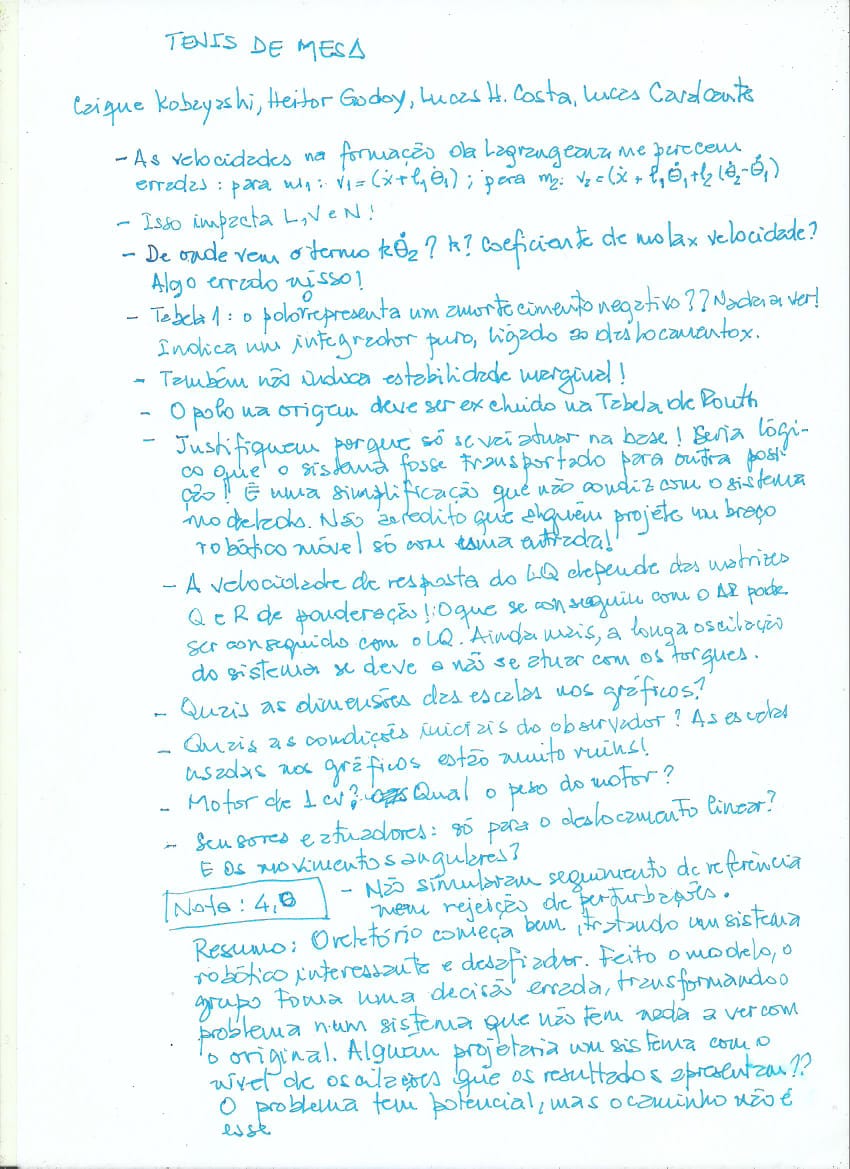 TENIS DE MESA
Caique Kobayashi, Heitor Godoy, Lucas H. Costa, Lucas Cavalcante
- As velocidades na formação da Lagrangeana me parecem
erradas: para m₁: v₁=(ẋ+l₁θ̇₁) ; para m₂: v₂=(ẋ + l₁θ̇₁+l₂(θ̇₂-θ̇₁)
- Isso impacta L, V e N!
- De onde vem o termo kθ̇₂? k? Coeficiente de mola x velocidade?
Algo errado nisso!
- Tabela 1: o polo 0 representa um amortecimento negativo?? Nada a ver!
Indica um integrador puro, ligado ao deslocamento x.
- Também não indica estabilidade marginal!
- O polo na origem deve ser excluido na Tabela de Routh
- Justifiquem porque só se vai atuar na base! Seria lógi-
co que o sistema fosse transportado para outra posi-
ção! É uma simplificação que não condiz com o sistema
modelado. Não acredito que alguém projete um braço
robótico móvel só com uma entrada!
- A velocidade de resposta do LQ depende das matrizes
Q e R de ponderação! O que se conseguiu com o AP pode
ser conseguido com o LQ. Ainda mais, a longa oscilação
do sistema se deve a não se atuar com os torques.
- Quais as dimensões das escalas nos gráficos?
- Quais as condições iniciais do observador? As escalas
usadas nos gráficos estão muito ruins!
- Motor de 1 cv? Qual o peso do motor?
- Sensores e atuadores: só para o deslocamento linear?
E os movimentos angulares?
- Não simularam seguimento de referência
nem rejeição de perturbações.
Nota: 4,0
Resumo: O relatório começa bem, tratando um sistema
robótico interessante e desafiador. Feito o modelo, o
grupo toma uma decisão errada, transformando o
problema num sistema que não tem nada a ver com
o original. Alguém projetaria um sistema com o
nível de oscilações que os resultados apresentam??
O problema tem potencial, mas o caminho não é
esse